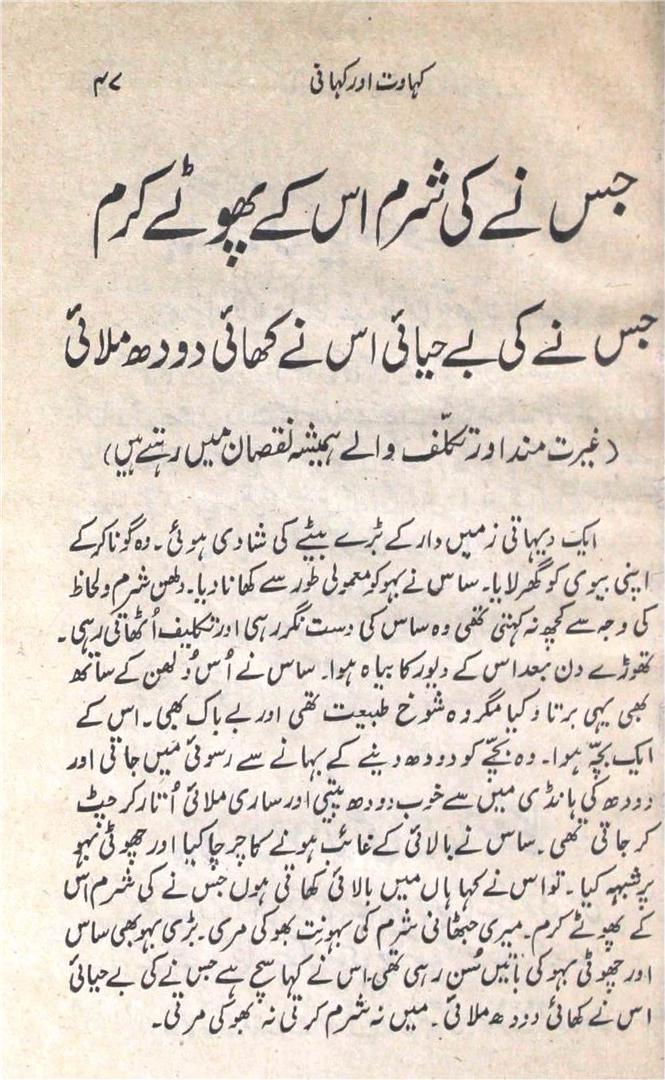 کہاوت اور کہانی ۴۷
جس نے کی شرم اس کے پھوٹے کرم
جس نے کی بے حیائی اس نے کھائی دودھ ملائی
(غیرت مند اور تکلّف والے ہمیشہ نقصان میں رہتے ہیں)
ایک دیہاتی زمیں دار کے بڑے بیٹے کی شادی ہوئی۔ وہ گونا کر کے
اپنی بیوی کو گھر لایا۔ ساس نے بہو کو معمولی طور سے کھانا دیا۔ دلھن شرم و لحاظ
کی وجہ سے کچھ نہ کہتی تھی وہ ساس کی دست نگر رہی اور تکلیف اُٹھاتی رہی۔
تھوڑے دن بعد اس کے دیور کا بیاہ ہوا۔ ساس نے اُس دُلھن کے ساتھ
بھی یہی برتاو کیا مگر وہ شوخ طبیعت تھی اور بے باک بھی۔ اس کے
ایک بچّہ ہوا۔ وہ بچّے کو دودھ دینے کے بہانے سے رسوئی میں جاتی اور
دودھ کی ہانڈی میں سے خوب دودھ پیتی اور ساری ملائی اُتار کر چٹ
کر جاتی تھی۔ ساس نے بالائی کے غائب ہونے کا چرچا کیا اور چھوٹی بہو
پر شبہہ کیا۔ تو اس نے کہا ہاں میں بالائی کھاتی ہوں جس نے کی شرم اس
کے پھوٹے کرم۔ میری جٹھانی شرم کی بہونت بھوکی مری۔ بڑی بہو بھی ساس
اور چھوٹی بہو کی باتیں سُن رہی تھی۔ اس نے کہا سچ ہے جس نے کی بے حیائی
اس نے کھائی دودھ ملائی۔ میں نہ شرم کرتی نہ بھوکی مرتی۔